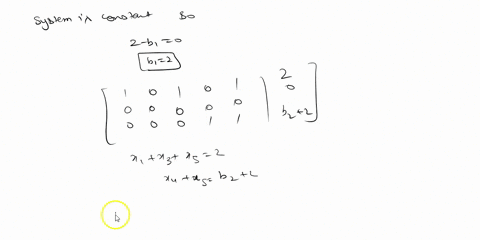 System is constant so
2-b₁=0
b₁=2
1 0 1 0 1 2
0 0 0 0 0 0
0 0 0 1 1 b₂+2
x₁+x₃+x₅=2
x₄+x₅=b₂+2
b